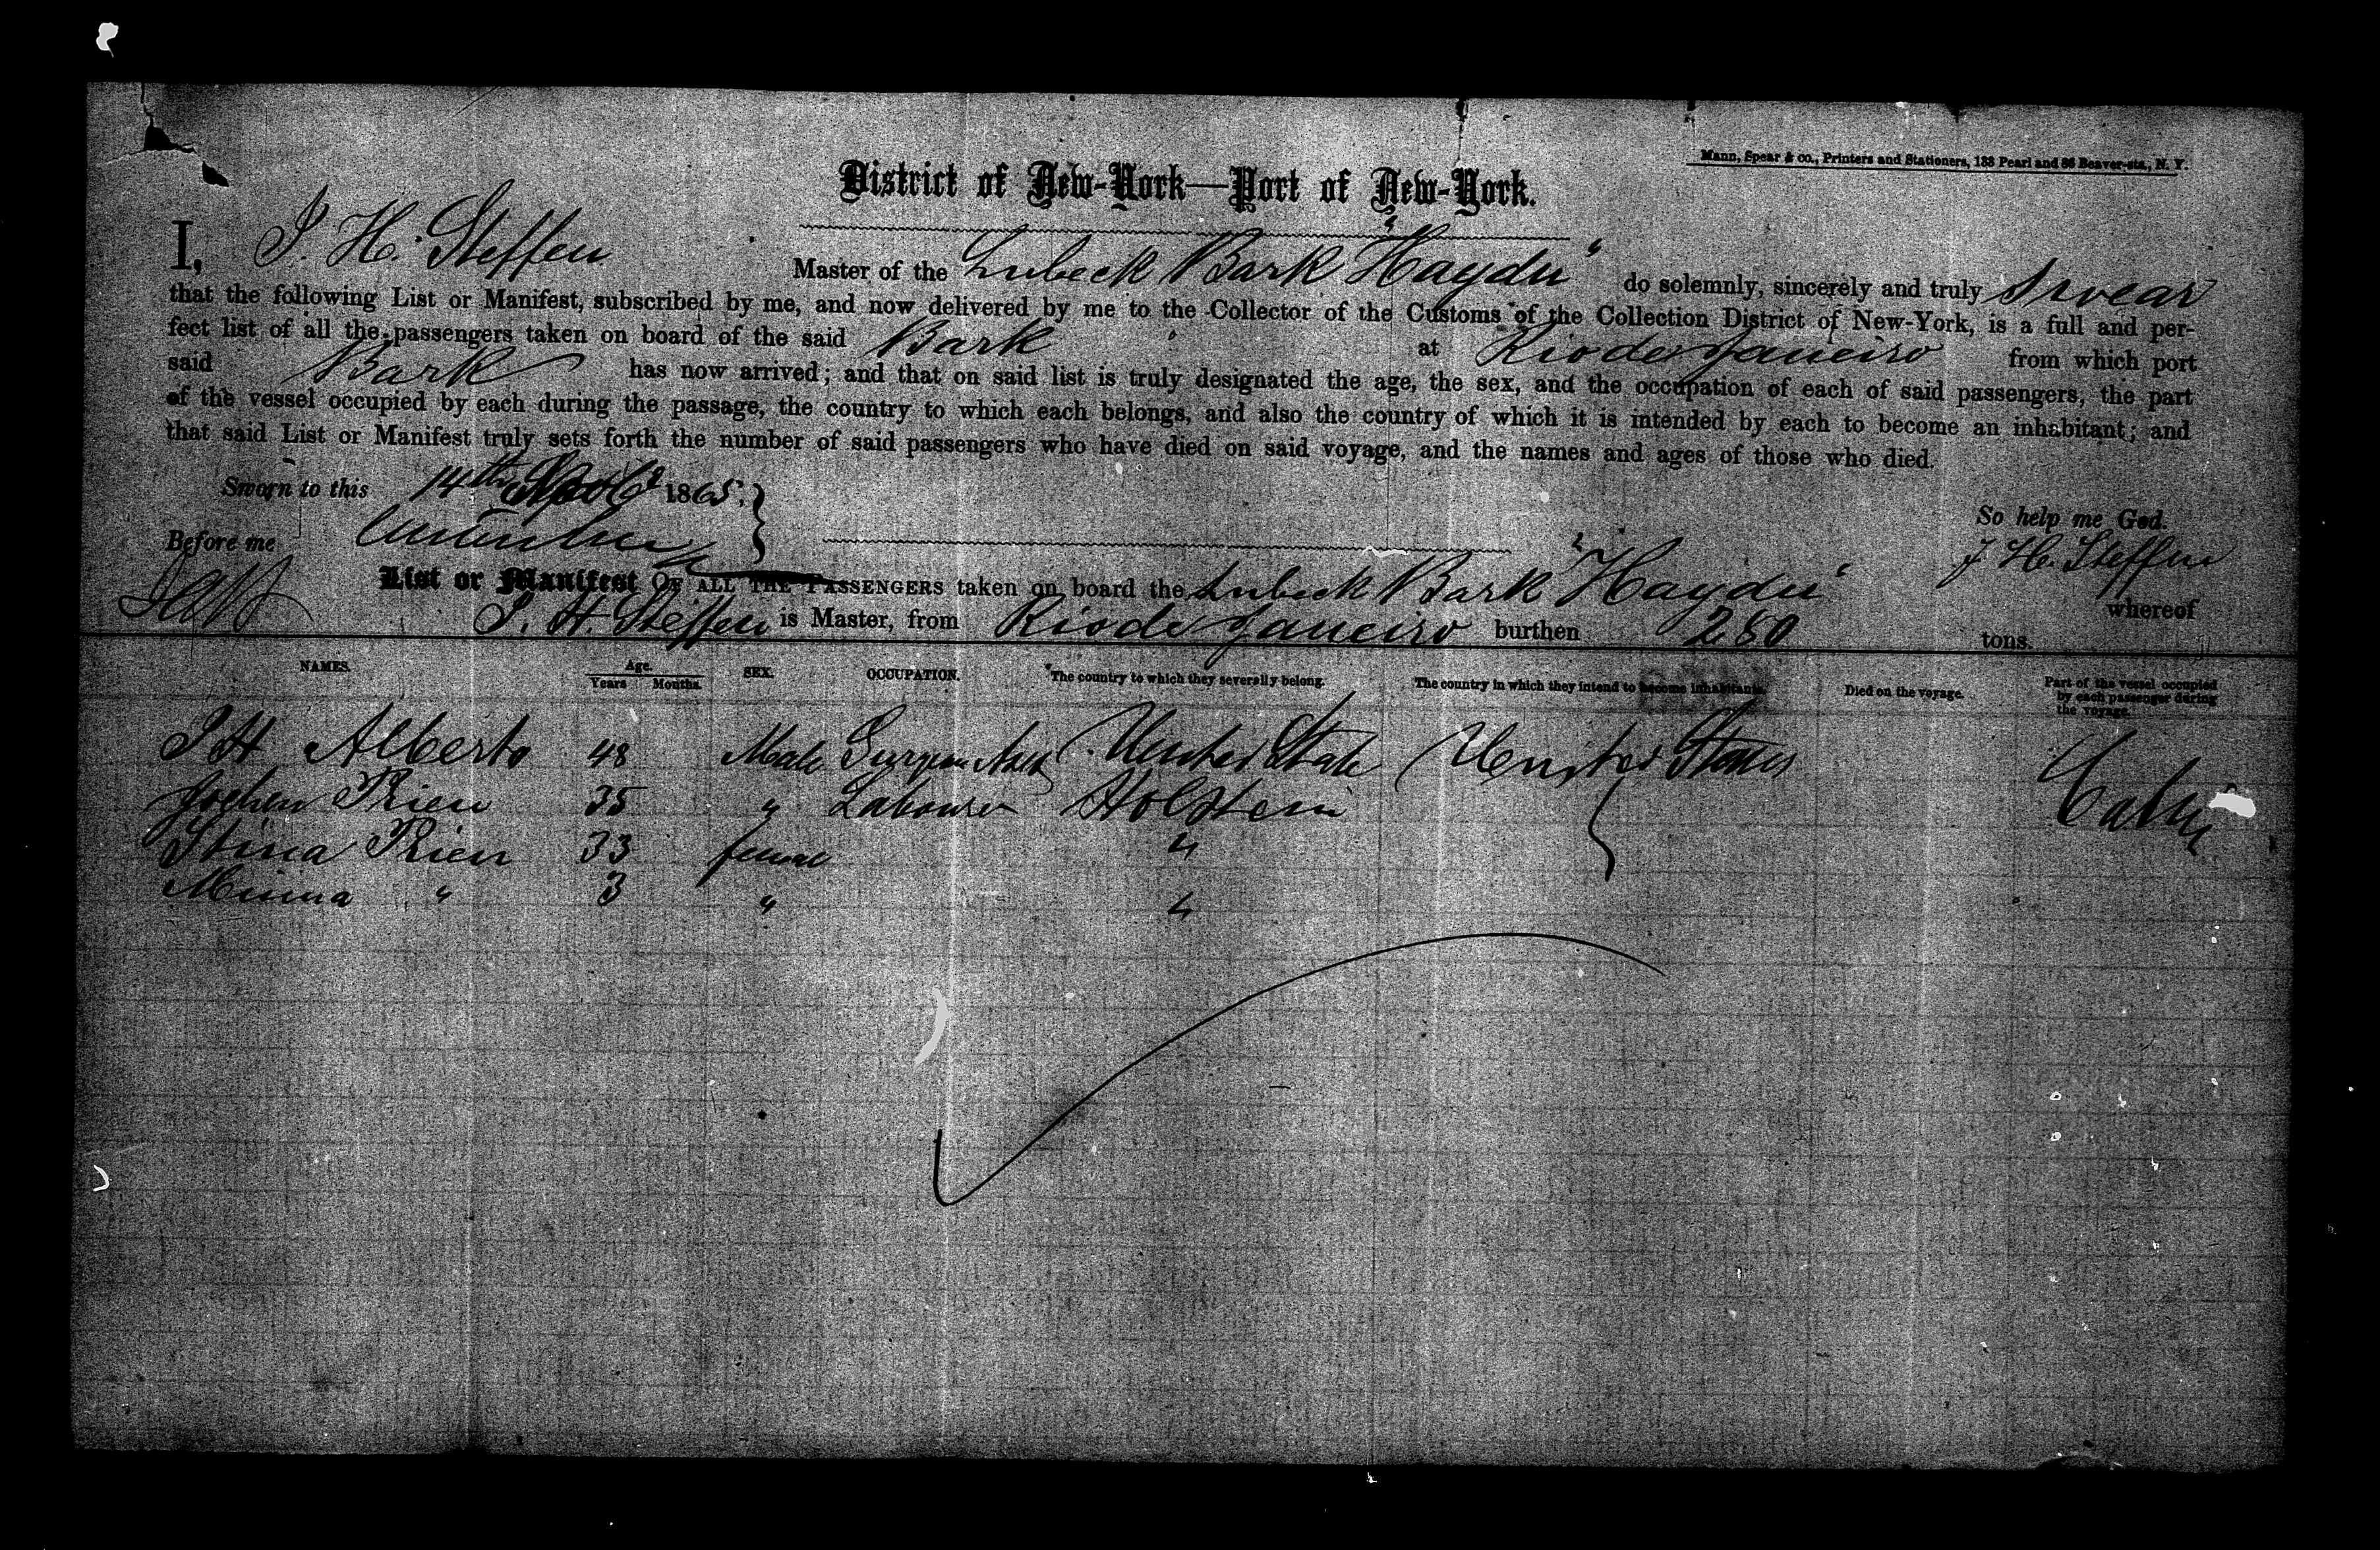 Mann, Spear & co., Printers and Stationers, 133 Pearl and 86 Beaver-sts., N. Y.
District of New-York—Port of New-York.
I, J. H. Steffen Master of the Lubeck Bark "Haydn" do solemnly, sincerely and truly swear
that the following List or Manifest, subscribed by me, and now delivered by me to the Collector of the Customs of the Collection District of New-York, is a full and per-
fect list of all the passengers taken on board of the said Bark at Rio de Janeiro from which port
said Bark has now arrived; and that on said list is truly designated the age, the sex, and the occupation of each of said passengers, the part
of the vessel occupied by each during the passage, the country to which each belongs, and also the country of which it is intended by each to become an inhabitant; and
that said List or Manifest truly sets forth the number of said passengers who have died on said voyage, and the names and ages of those who died.
Sworn to this 14th 1865.
So help me God.
Before me
J. H. Steffen
List or Manifest OF ALL THE PASSENGERS taken on board the Lubeck Bark "Haydn" whereof
J. H. Steffen is Master, from Rio de Janeiro burthen 280 tons.
NAMES. Age. Years Months. SEX. OCCUPATION. The country to which they severally belong. The country in which they intend to become inhabitants. Died on the voyage. Part of the vessel occupied by each passenger during the voyage.
J H Alberto 48 Male Surgeon United State United States
Jochen Prien 35 " Labourer Holstein
Stina Prien 33 female "
Minna " 3 " "